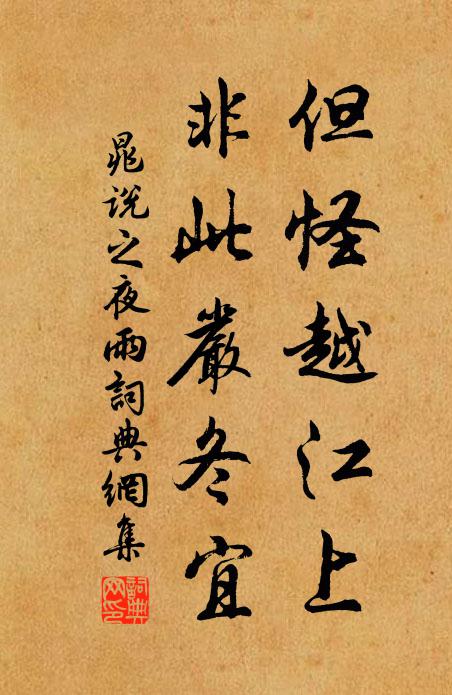 但怪越江上
非此嚴冬宜
晁說之夜雨詞典網集
詞典網印